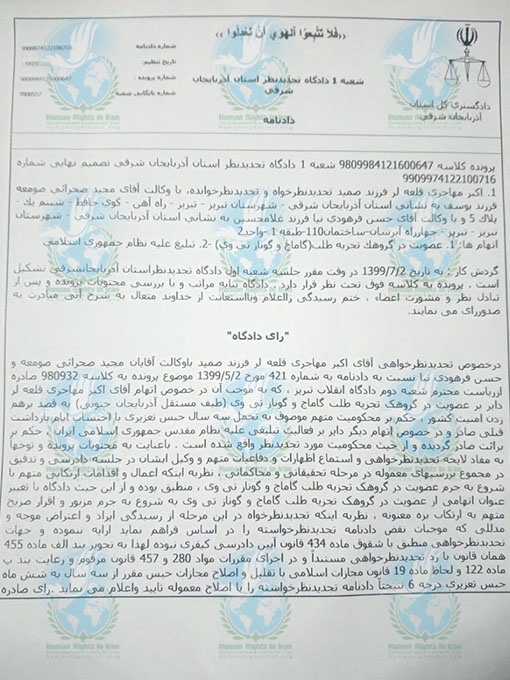 «فلا تتبعوا الهوی ان تعدلوا»
شماره دادنامه 9909974122100716
تاریخ تنظیم:
شماره پرونده :
شماره بایگانی شعبه
شعبه 1 دادگاه تجدیدنظر استان آذربایجان
شرقی
دادنامه
دادگستری کل استان
آذربایجان شرقی
پرونده کلاسه 9809984121600647 شعبه 1 دادگاه تجدیدنظر استان آذربایجان شرقی تصمیم نهایی شماره
9909974122100716
1. اکبر مهاجری قلعه لر فرزند صمید تجدیدنظرخواه و تجدیدنظرخوانده، با وکالت آقای مجید صحرائی صومعه
فرزند یوسف به نشانی استان آذربایجان شرقی - شهرستان تبریز - تبریز - راه آهن - کوی حافظ - شمیم یک -
پلاک 5 و با وکالت آقای حسن فرهودی نیا فرزند غلامحسین به نشانی استان آذربایجان شرقی - شهرستان
تبریز - تبریز - چهارراه آبرسان-ساختمان110-طبقه 1 -واحد2
اتهام ها: 1. عضویت در گروهک تجزیه طلب(گاماج و گوناز تی وی) 2- تبلیغ علیه نظام جمهوری اسلامی
گردش کار : به تاریخ 1399/7/2 در وقت مقرر جلسه شعبه اول دادگاه تجدیدنظراستان آذربایجانشرقی تشکیل
است . پرونده به کلاسه فوق تحت نظر قرار دارد. دادگاه بنابه مراتب و با بررسی محتویات پرونده و پس از
تبادل نظر و مشورت اعضاء ، ختم رسیدگی رااعلام وبااستعانت از خداوند متعال به شرح آتی مبادرت به
صدوررای می نمایند.
"رای دادگاه"
درخصوص تجدیدنظرخواهی آقای اکبر مهاجری قلعه لر فرزند صمید باوکالت آقایان مجید صحرائی صومعه و
حسن فرهودی نیا نسبت به دادنامه به شماره 421 مورخ 1399/5/2 موضوع پرونده به کلاسه 980932 صادره
ازریاست محترم شعبه دوم دادگاه انقلاب تبریز ، که به موجب آن در خصوص اتهام آقای اکبر مهاجری قلعه لر
دایر بر عضویت در گروهک تجزیه طلب گاماج و گوناز تی وی (طیف مستقل آذربایجان جنوبی) به قصد برهم
زدن امنیت کشور ، حکم بر محکومیت متهم موصوف به تحمل سه سال حبس تعزیری با احتساب ایام بازداشت
قبلی صادر و در خصوص اتهام دیگر دایر بر فعالیت تبلیغی علیه نظام مقدس جمهوری اسلامی ایران ، حکم بر
برائت صادر گردیده و از حیث محکومیت مورد تجدیدنظر واقع شده است . باعنایت به محتویات پرونده و توجها
به مفاد لایحه تجدیدنظرخواهی و استماع اظهارات و دفاعیات متهم و وکیل ایشان در جلسه دادرسی و تدقیق
در مجموع بررسیهای معموله در مرحله تحقیقاتی و محاکماتی ، نظربه اینکه اعمال و اقدامات ارتکابی متهم با
شروع به جرم عضویت در گروهک تجزیه طلب گاماج و گوناز تی وی ، منطبق بوده و از این حیث دادگاه با تغییر
عنوان اتهامی از عضویت در گروهک تجزیه طلب گاماج و گوناز تی وی به شروع به جرم مزبور و اقرار صریح
متهم به ارتکاب بزه معنونه ، نظربه اینکه تجدیدنظرخواه در این مرحله از رسیدگی ایراد و اعتراض موجه و
مدللی که موجبات نقض دادنامه تجدیدنظرخواسته را در اساس فراهم نماید ارایه ننموده و جهات
تجدیدنظرخواهی منطبق با شقوق ماده 434 قانون آیین دادرسی کیفری نبوده لهذا به تجویز بند الف ماده 455
همان قانون با رد تجدیدنظرخواهی مستنداً و در اجرای مقررات مواد 280 و 457 قانون مرقوم و رعایت بند پ
ماده 122 و لحاظ ماده 19 قانون مجازات اسلامی با تقلیل و اصلاح مجازات حبس مقرر از سه سال به شش ماه
حبس تعزیری درجه 6 نتیجتاً دادنامه تجدیدنظرخواسته را با اصلاح معموله تایید واعلام می نماید .رای صادره